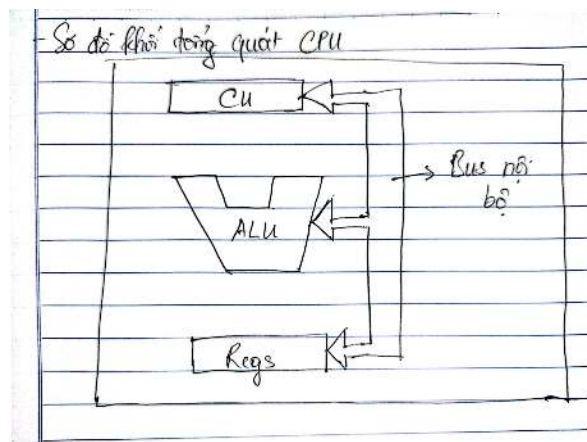 - Sơ đồ khối tổng quát CPU
CU
Bus nội
bộ
ALU
Regs